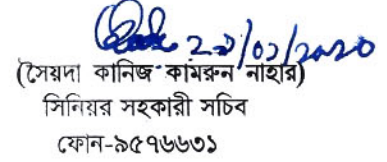 (সৈয়দা কানিজ কামরুন নাহার)
সিনিয়র সহকারী সচিব
ফোন-৯৫৭৬৬৩১